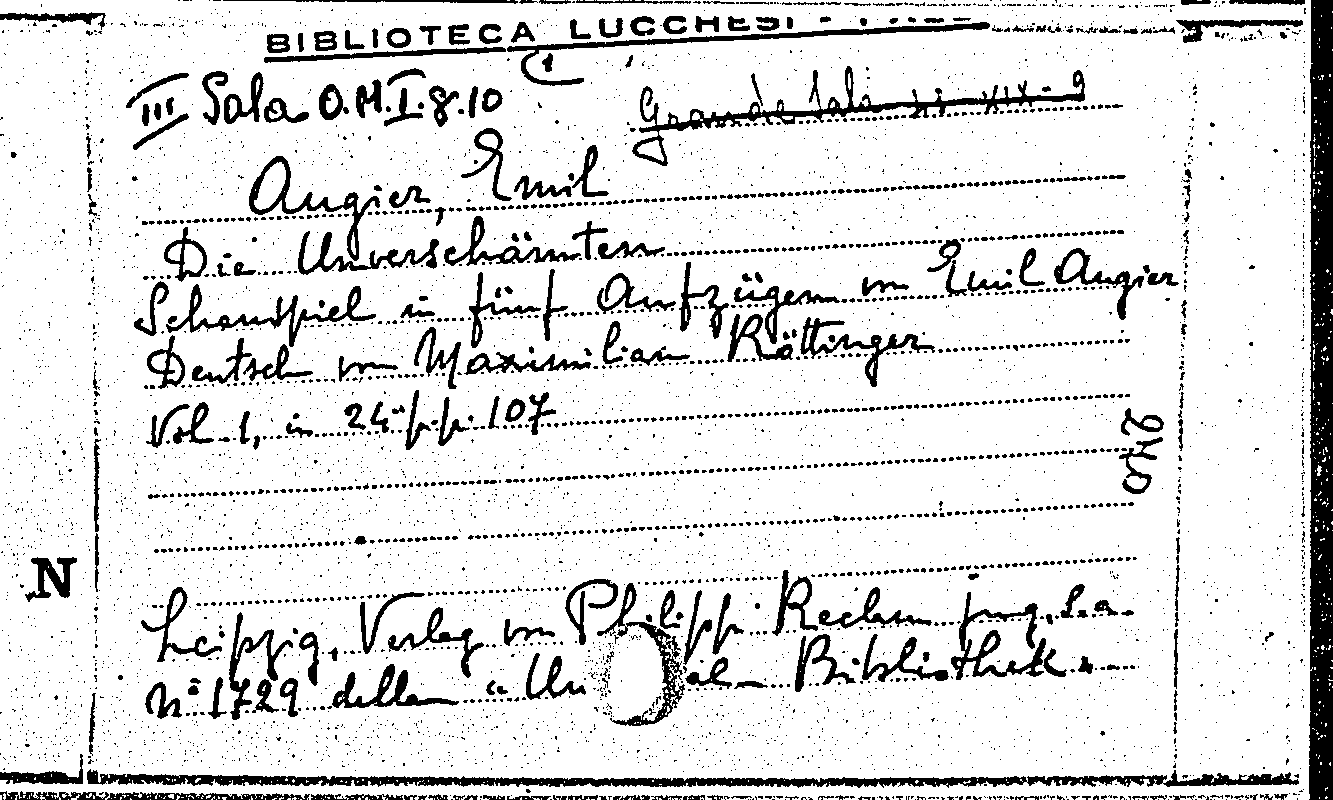 BIBLIOTECA LUCCHESI -
III Sala O.M.I.8.10
Grande Sala XIX-9
Augier, Emil
Die Unverschämten
Schauspiel in fünf Aufzügen von Emil Augier
Deutsch von Maximilian Röttinger
Vol. 1, in 24° p.p. 107
2440
Leipzig, Verlag von Philipp Reclam jung, s.a.
N° 1729 della "Un al Bibliothek".
N